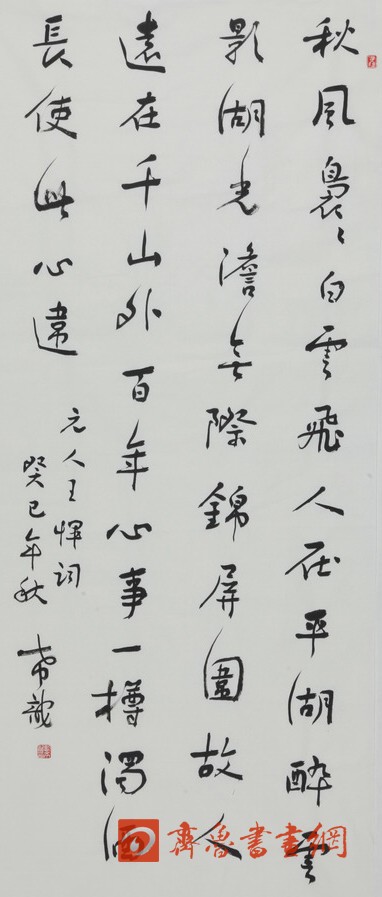 秋風裊〻白雲飛人在平湖醉雲
影湖光澹無際錦屏圍故人
遠在千山外百年心事一樽濁酒
長使此心違
元人王惲詞
癸巳年秋
齊魯書畫網